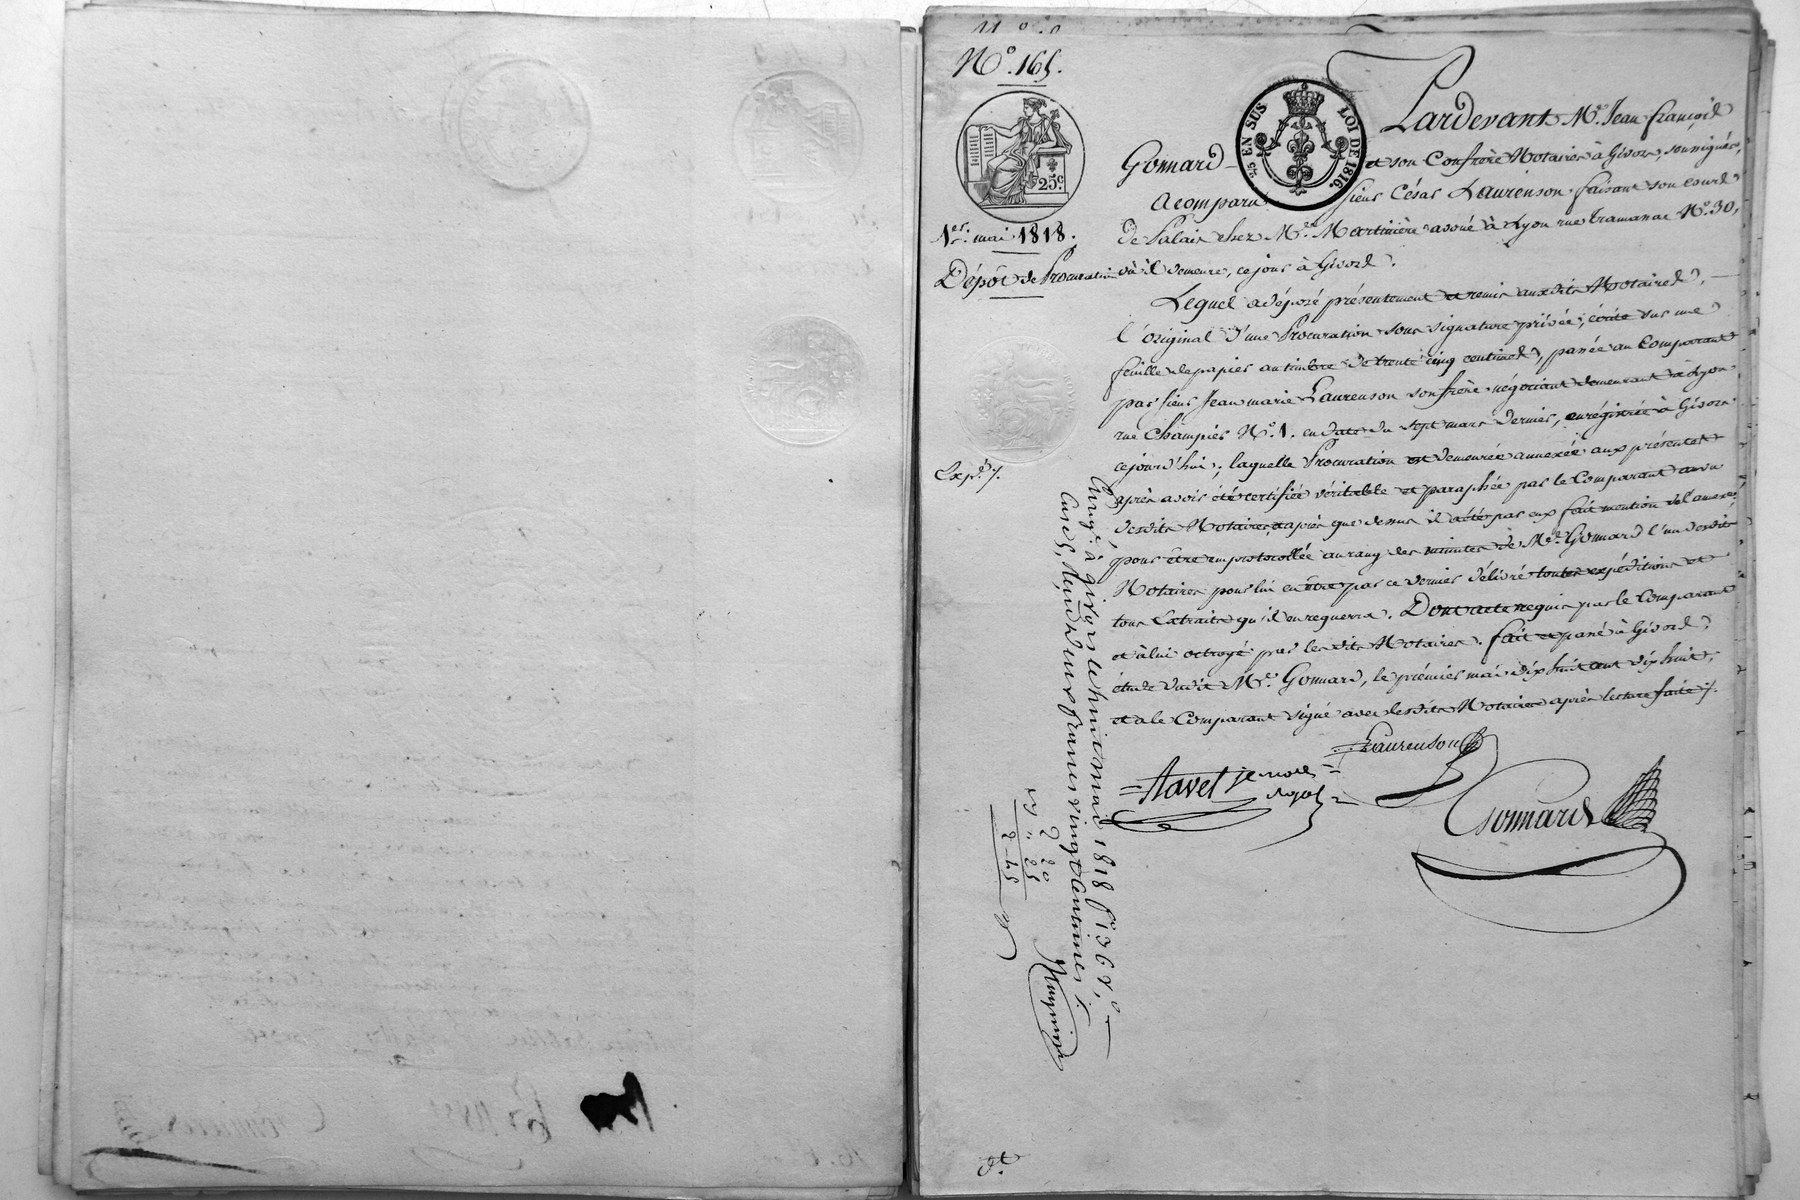 N.º 165.
25 c.
¼ EN SUS LOI DE 1816.
1.er mai 1818.
Dépôt de Procuration
Exp.é /.
Pardevant M.e Jean François
Gonnard et son Confrère Notaires à Givors, soussignés,
A comparu sieur César Laurenson faisant son cours
de Palais chez M.e Martinière avoué à Lyon rue Tramanac N.º 30,
où il demeure, ce jour à Givors.
Lequel a déposé présentement et remis auxdits Notaires,
l'original d'une Procuration sous signature privée, écrite sur une
feuille de papier au timbre de trente cinq centimes, passée au Comparant
par sieur Jean marie Laurenson son frère négociant demeurant à Lyon
rue Champier N.º 1. en date du sept mars dernier, enrégistrée à Givors
cejourd'hui; laquelle Procuration est demeurée annexée aux présentes
après avoir été certifiée véritable et paraphée par le Comparant au vu
desdits Notaires, après que dessus il a été par eux fait mention de l'annexe,
pour être emprotocollée au rang des minutes de M.e Gonnard l'un desdits
Notaires pour lui en être par ce dernier délivré toutes expéditions et
tous Extraits qu'il en requerra. Dont acte requis par le Comparant
et à lui octroyé par lesdits Notaires. fait et passé à Givors,
étude dudit M.e Gonnard, le prémier mai dix huit cent dix huit,
et a le Comparant signé avec lesdits Notaires après lecture faite /.
Laurenson
Favet je nore
royal
Gonnard
Enreg.é à givors le huit mai 1818 f.º 136 V.º
Cases, deux francs vingt centimes /.
2 20
25
2 45